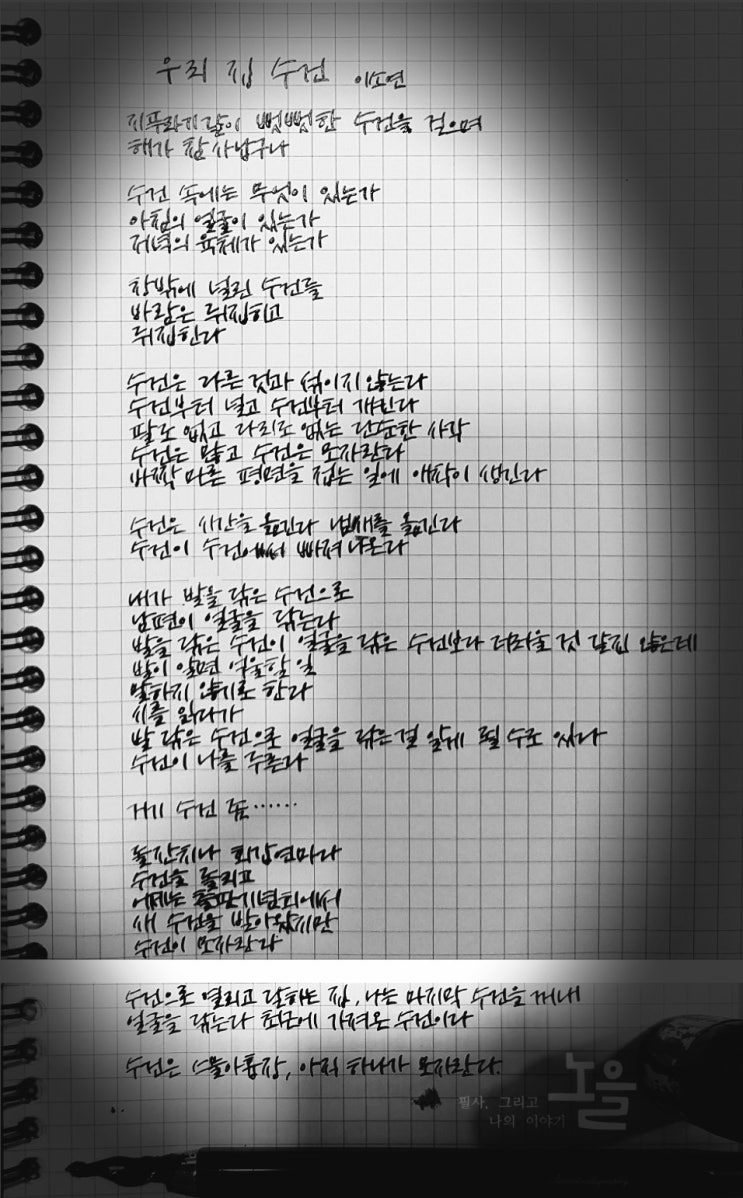 우리 집 수건 이소연
지푸라기같이 뻣뻣한 수건을 걷으며
해가 참 사납구나
수건 속에는 무엇이 있는가
아침의 얼굴이 있는가
저녁의 육체가 있는가
창밖에 널린 수건들
바람은 뒤집히고
뒤집힌다
수건은 다른 것과 섞이지 않는다
수건부터 널고 수건부터 개킨다
팔도 없고 다리도 없는 단순한 사각
수건은 많고 수건은 모자란다
바짝 마른 평면을 접는 일에 애착이 생긴다
수건은 시간을 옮긴다 냄새를 옮긴다
수건이 수건에서 빠져나온다
내가 발을 닦은 수건으로
남편이 얼굴을 닦는다
발을 닦은 수건이 얼굴을 닦은 수건보다 더러울 것 같진 않은데
발이 알면 억울할 일
말하지 않기로 한다
시를 읽다가
발 닦은 수건으로 얼굴을 닦은걸 알게 될 수도 있다
수건이 나를 두른다
거기 수건 좀……
돌잔치나 회갑연마다
수건을 돌리고
어제는 출판기념회에서
새 수건을 받아왔지만
수건이 모자란다
수건으로 열리고 닫히는 집, 나는 마지막 수건을 꺼내
얼굴을 닦는다 최근에 가져온 수건이다
수건은 스물아홉장, 아직 하나가 모자란다.
필사, 그리고
나의 이야기
노을